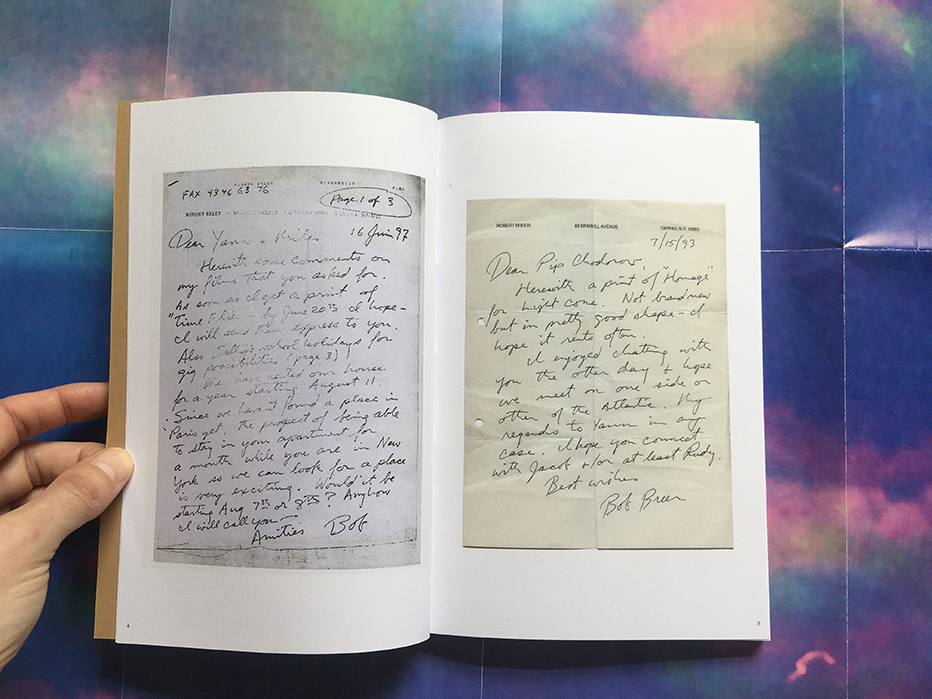 FAX 43 46 63 76
Page 1 of 3
ROBERT BREER
Dear Yann + Miles
16 Jun 97
Herewith some comments on
my films that you asked for.
As soon as I get a print of
"Time Flies" – by June 20th I hope –
I will send it express to you.
Also Sally's school holidays for
gig possibilities (page 3)
We have rented our house
for a year starting August 11.
Since we haven't found a place in
Paris yet, the prospect of being able
to stay in your apartment for
a month while you are in New
York so we can look for a place
is very exciting. Would it be
starting Aug 7th or 8th? Anyhow
I will call you –
Amities Bob
4
ROBERT BREER
SPARKILL AVENUE
TAPPAN, N.Y. 10983
7/15/93
Dear Pip Chodorov,
Herewith a print of "Homage"
for Light Cone. Not brand new
but in pretty good shape – I
hope it rents often.
I enjoyed chatting with
you the other day & hope
we meet on one side or
other of the Atlantic. My
regards to Yann in any
case. I hope you connect
with Jacob +/or at least Rudy.
Best wishes
Bob Breer
5